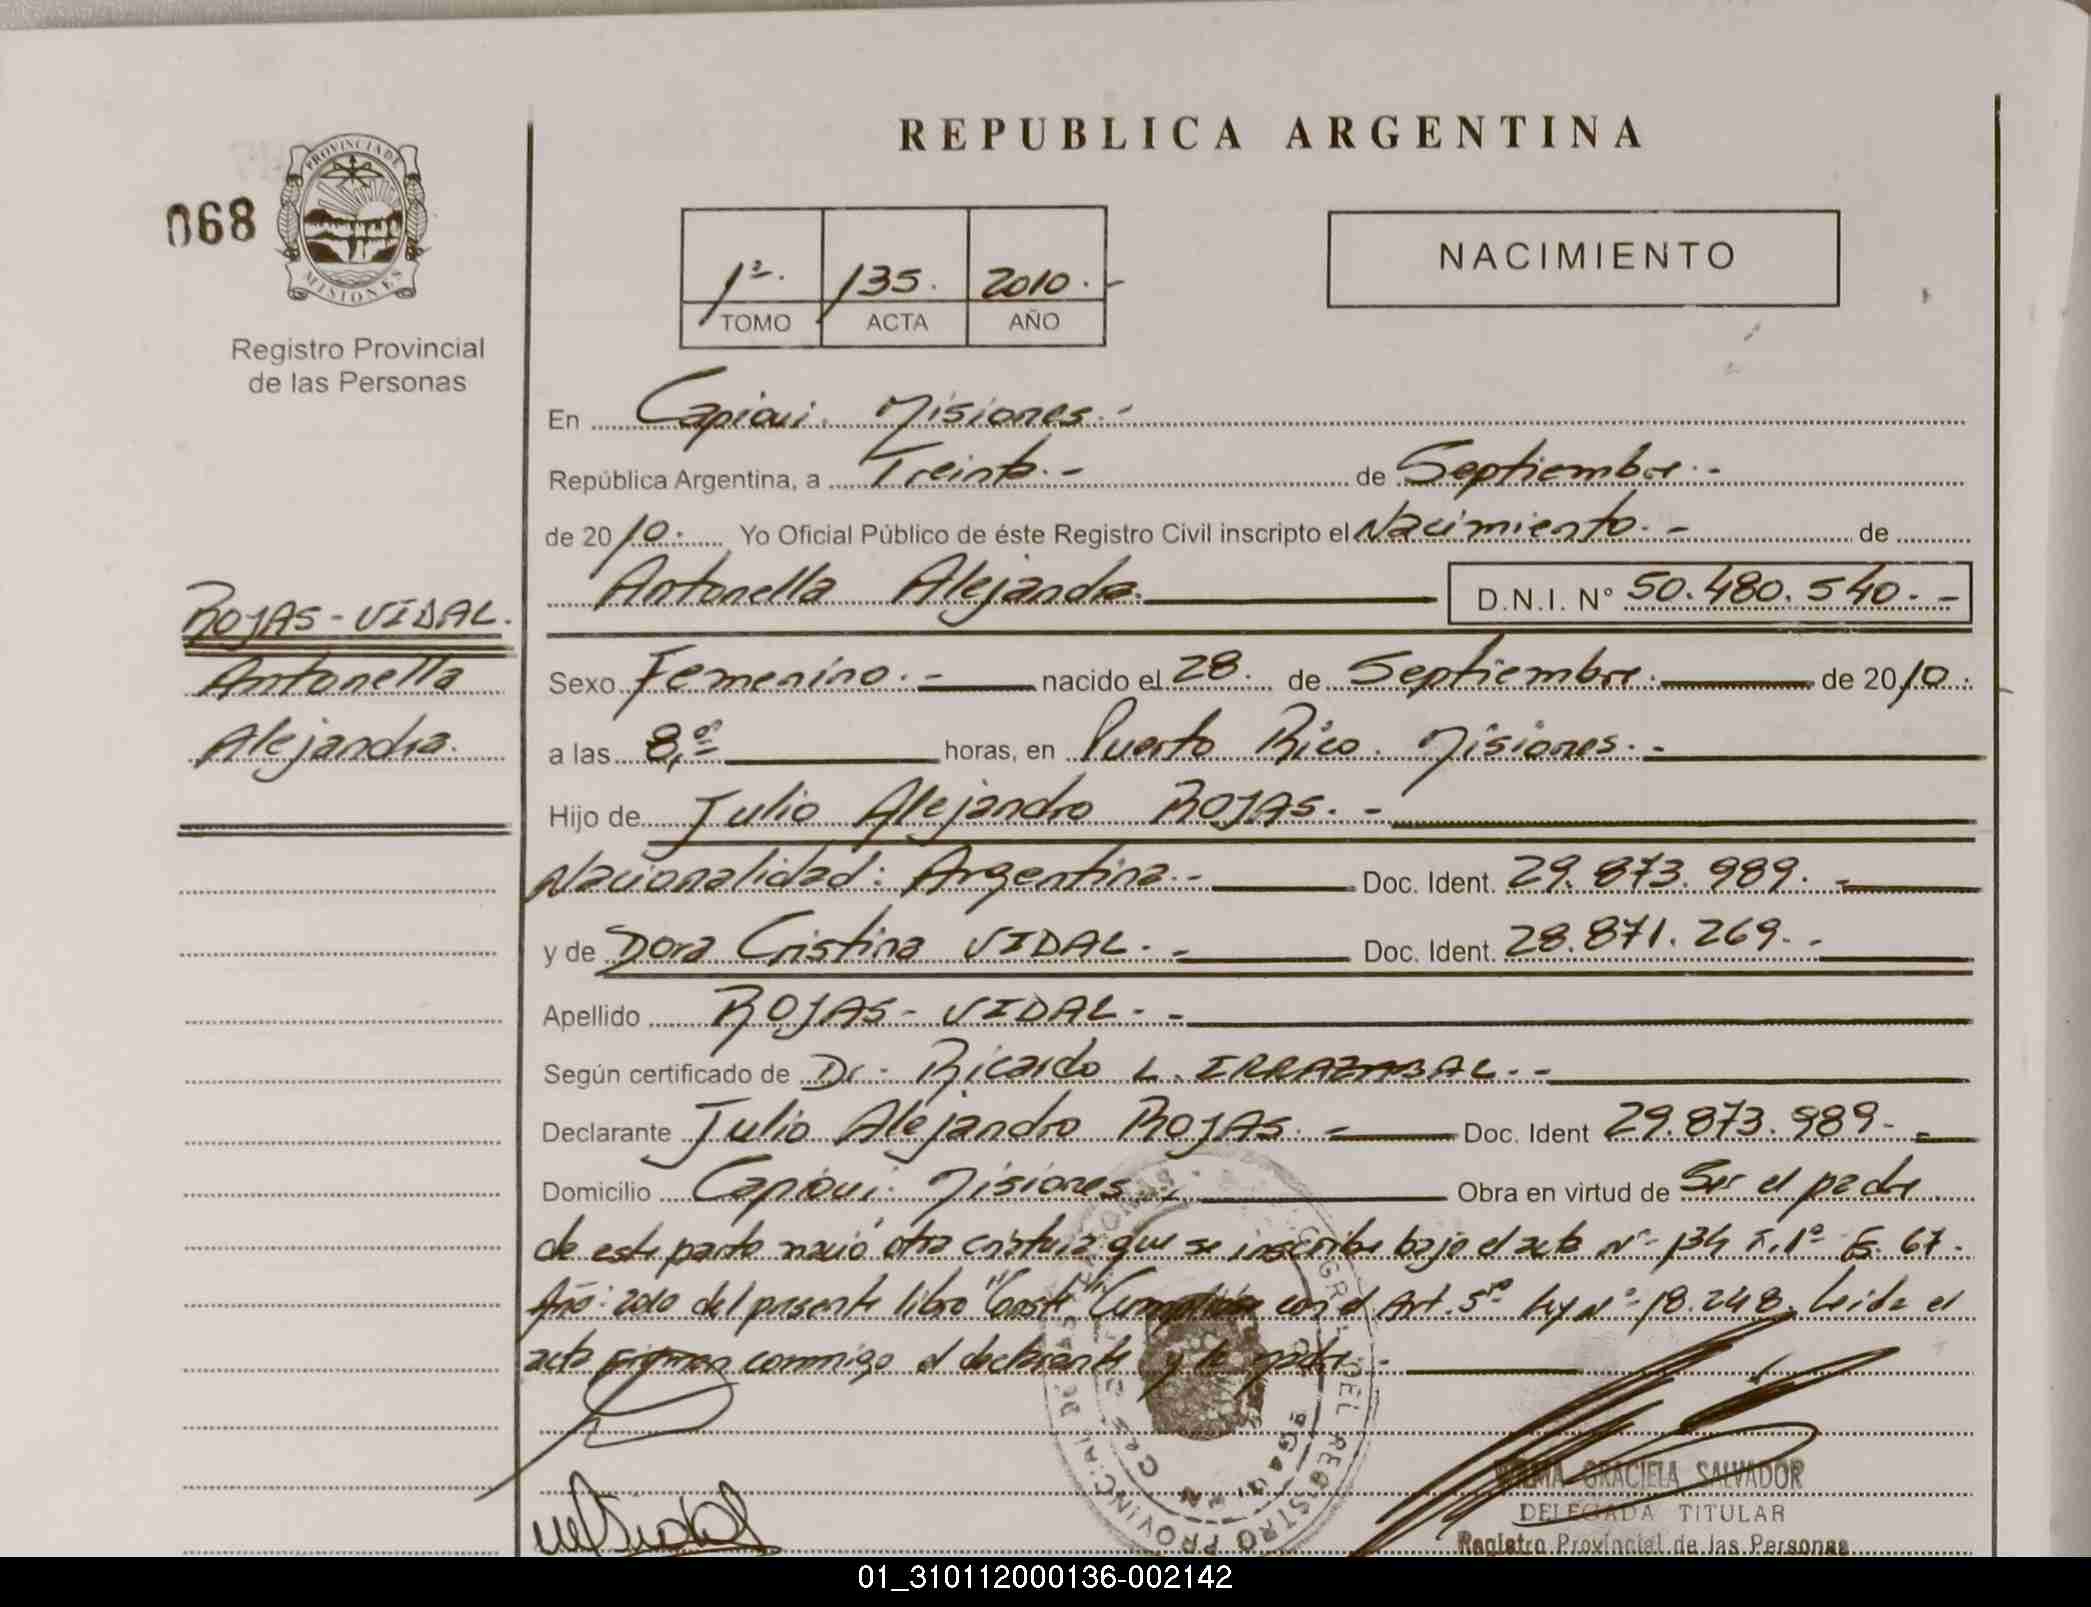 REPUBLICA ARGENTINA
068
PROVINCIA DE
MISIONES
Registro Provincial
de las Personas
1º. 135. 2010.-
TOMO ACTA AÑO
NACIMIENTO
En Capiovi. Misiones.-
República Argentina, a Treinta.- de Septiembre.-
de 2010. Yo Oficial Público de éste Registro Civil inscripto el Nacimiento.- de
Antonella Alejandra. D.N.I. Nº 50.480.540.-
ROJAS-VIDAL.
Antonella
Alejandra.
Sexo Femenino.- nacido el 28. de Septiembre. de 2010.
a las 8,º horas, en Puerto Rico. Misiones.-
Hijo de Julio Alejandro ROJAS.-
Nacionalidad: Argentina.- Doc. Ident. 29.873.989.-
y de Dora Cristina VIDAL.- Doc. Ident. 28.871.269.-
Apellido ROJAS-VIDAL.-
Según certificado de Dr. Ricardo L. IRRAZABAL.-
Declarante Julio Alejandro ROJAS.- Doc. Ident 29.873.989.-
Domicilio Capiovi. Misiones.- Obra en virtud de Ser el padre
de este parto nació otra criatura que se inscribe bajo el acta Nº 134 T.1º Fº 67.
Año: 2010 del presente libro "Conste" con el Art. 5º Ley Nº 18.248. Leida el
acta firman conmigo el declarante y la madre.-
GRACIELA SALVADOR
DELEGADA TITULAR
Registro Provincial de las Personas
01_310112000136-002142